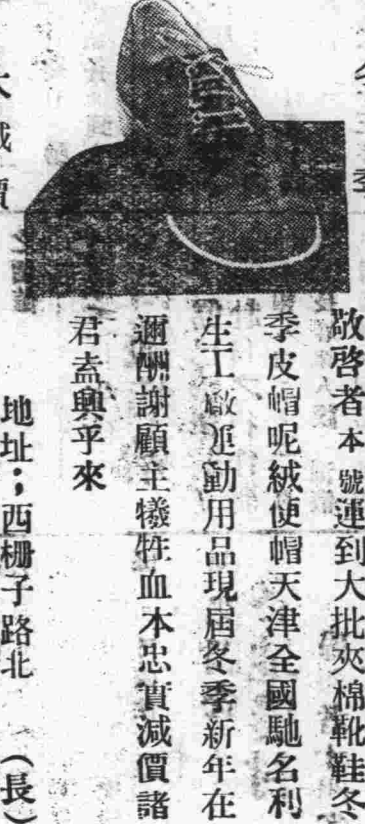 冬季
敬啓者本號運到大批夾棉靴鞋冬
季皮帽呢絨便帽天津全國馳名利
生工廠運動用品現屆冬季新年在
邇酬謝顧主犧牲血本忠實減價諸
君盍興乎來
地址：西柵子路北 （長）
大減價